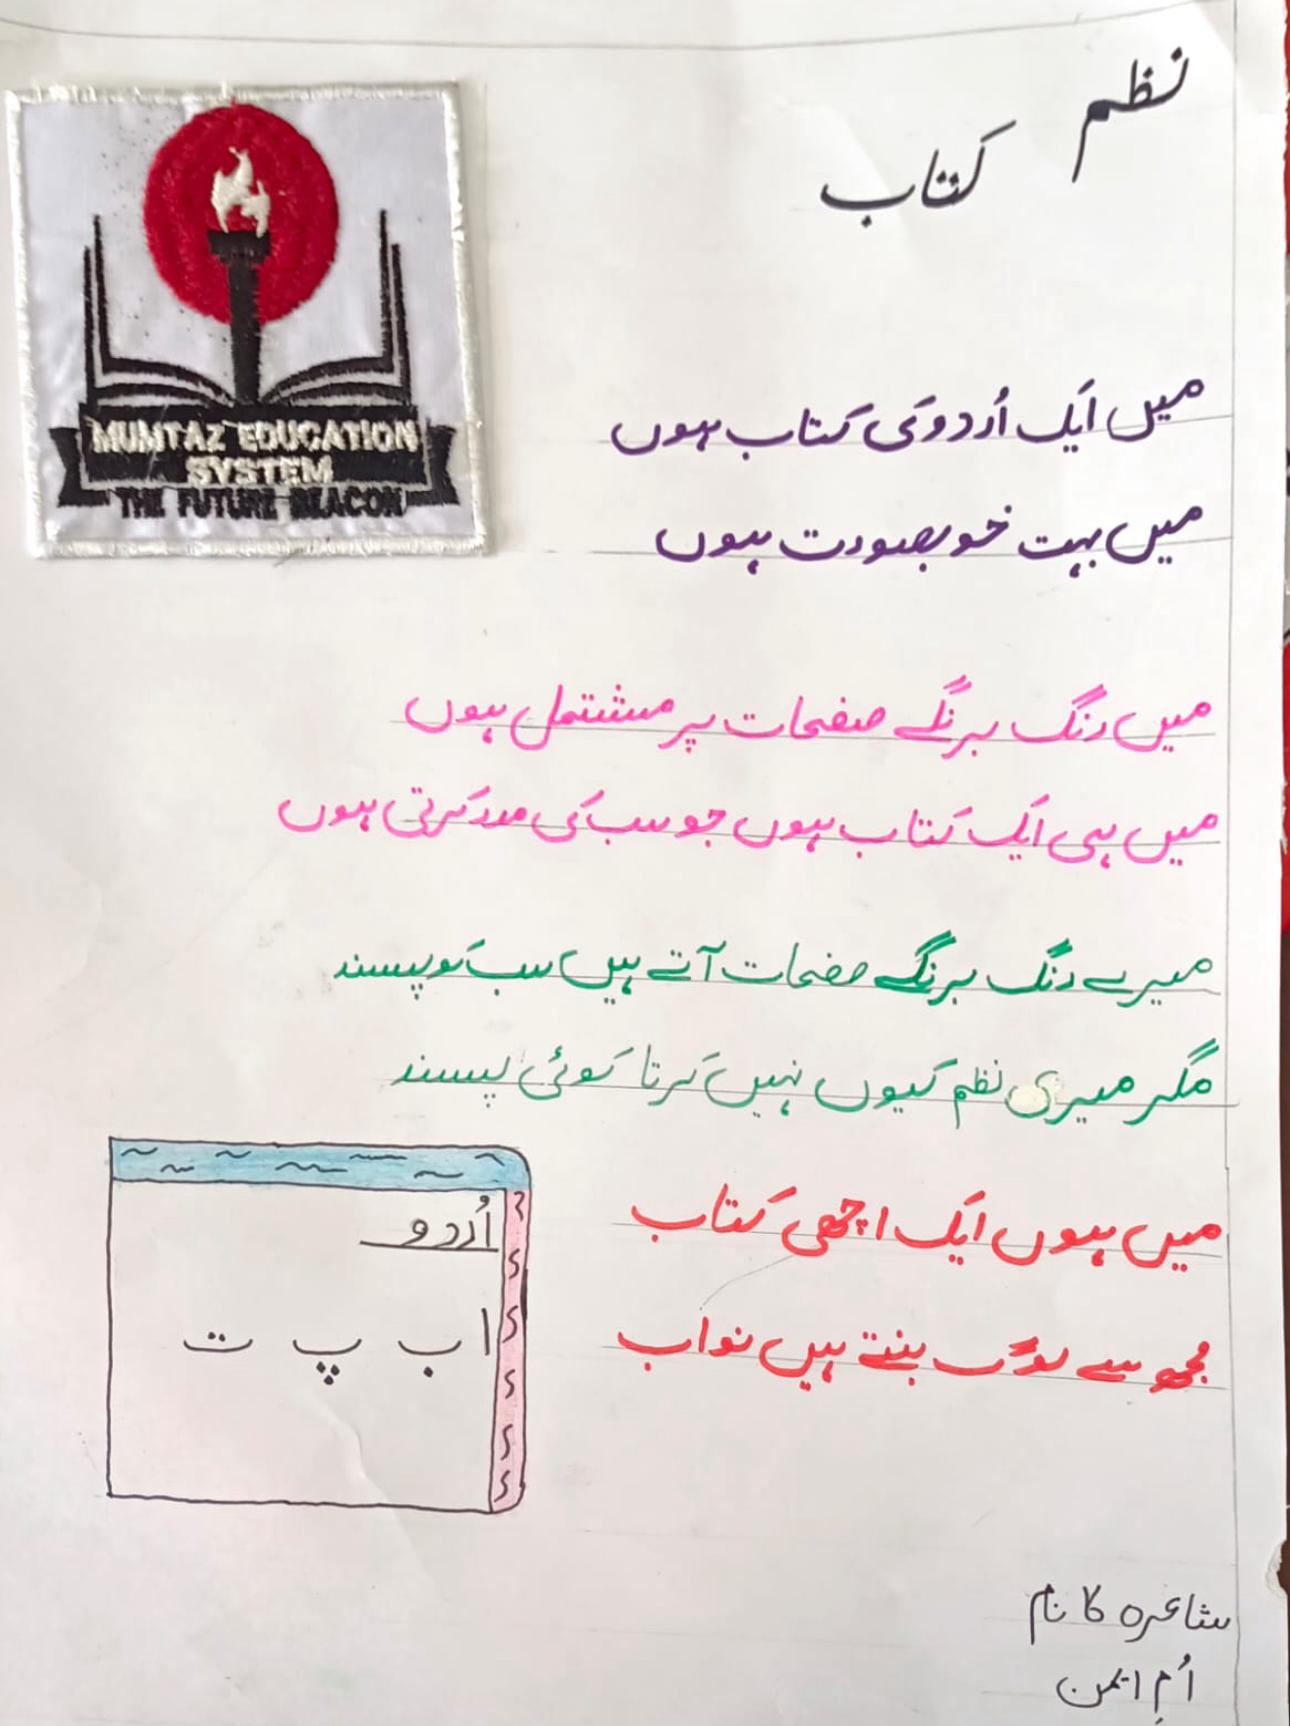 نظم
کتاب
MUMTAZ EDUCATION
SYSTEM
THE FUTURE BEACON
میں ایک اُردو کی کتاب ہوں
میں بہت خوبصورت ہوں
میں رنگ برنگے صفحات پر مشتمل ہوں
میں ہی ایک کتاب ہوں جو سب کی مدد کرتی ہوں
میرے رنگ برنگے صفحات آتے ہیں سب کو پسند
مگر میری نظم کیوں نہیں کرتا کوئی پسند
میں ہوں ایک اچھی کتاب
مجھ سے لوگ بنتے ہیں نواب
اُردو
ا ب پ ت
شاعرہ کا نام
اُمِ ایمن